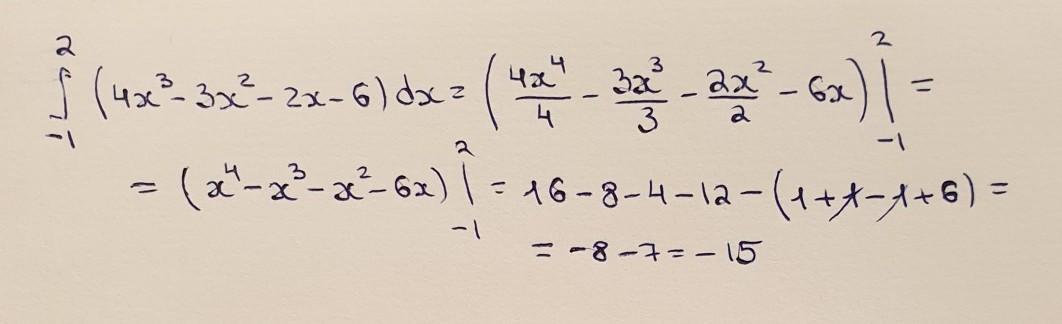 ∫₋₁² (4x³ - 3x² - 2x - 6) dx = (4x⁴/4 - 3x³/3 - 2x²/2 - 6x) |₋₁² =
= (x⁴ - x³ - x² - 6x) |₋₁² = 16 - 8 - 4 - 12 - (1 + 1 - 1 + 6) =
= -8 - 7 = -15